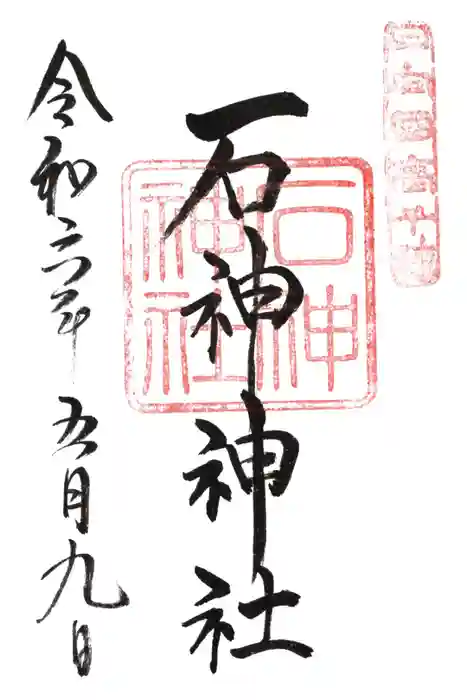 石神神社
令和六年五月九日
石神
神社